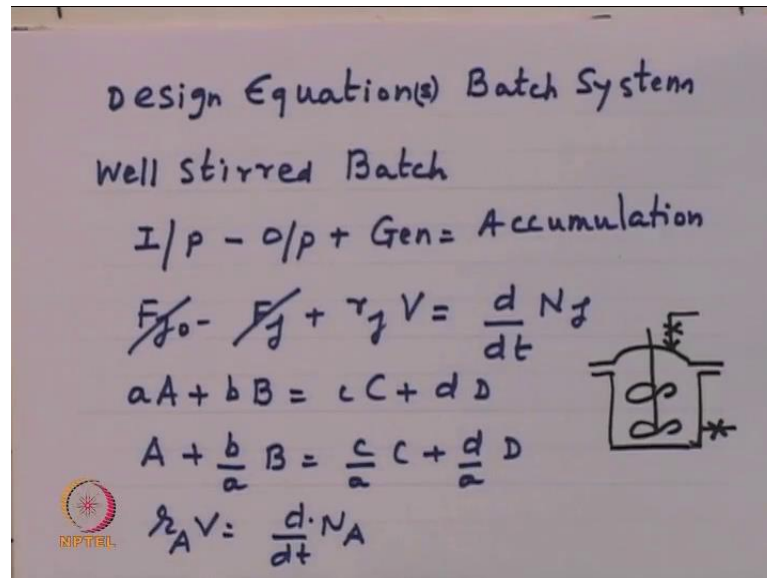 Design Equation(s) Batch System
Well Stirred Batch
I/p - O/p + Gen = Accumulation
Fj0 - Fj + rj V = d/dt Nj
aA + bB = cC + dD
A + b/a B = c/a C + d/a D
rA V = d/dt NA
NPTEL